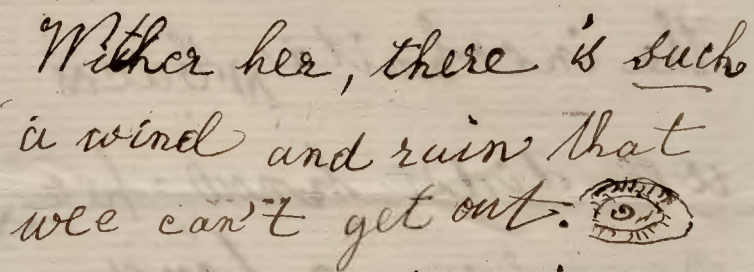 Wither her, there is such
a wind and rain that
wee can't get out.